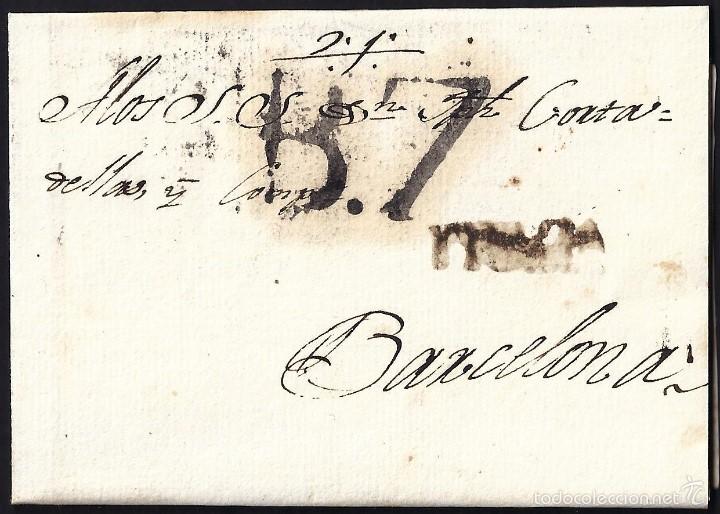 Alos S. S. Dn. Jph. Corta=
dellas, y Comp
B.7
Barcelona
todocoleccion.net